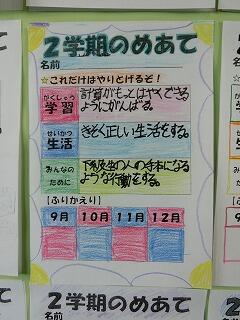 2学期のめあて
名前
☆これだけはやりとげるぞ!
がくしゅう
学習
計算がもっとはやくできる
ようにがんばる。
せいかつ
生活
きそく正しい生活をする。
みんなの
ために
下級生の人の手本になる
ような行動をする。
[ふりかえり]
9月 10月 11月 12月
2学期のめあて
名前